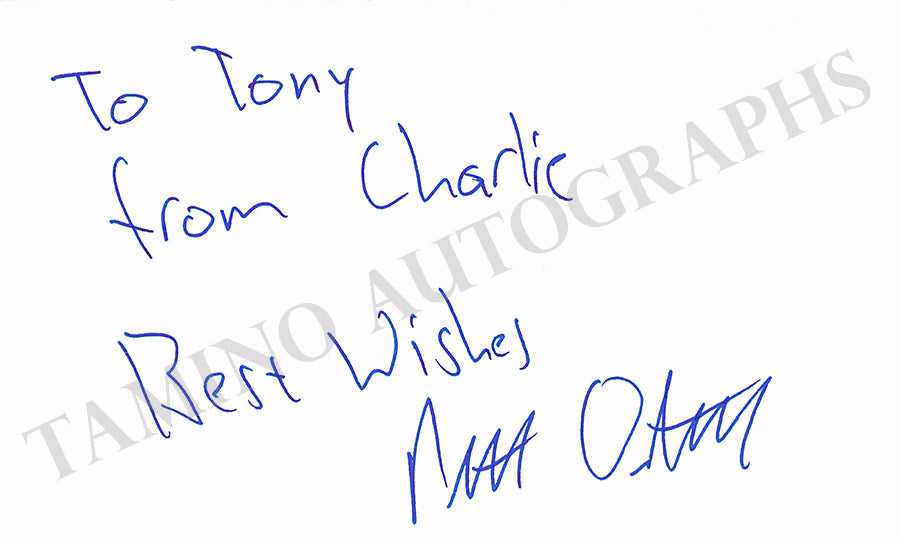 To Tony
from Charlie
Best Wishes
TAMINO AUTOGRAPHS